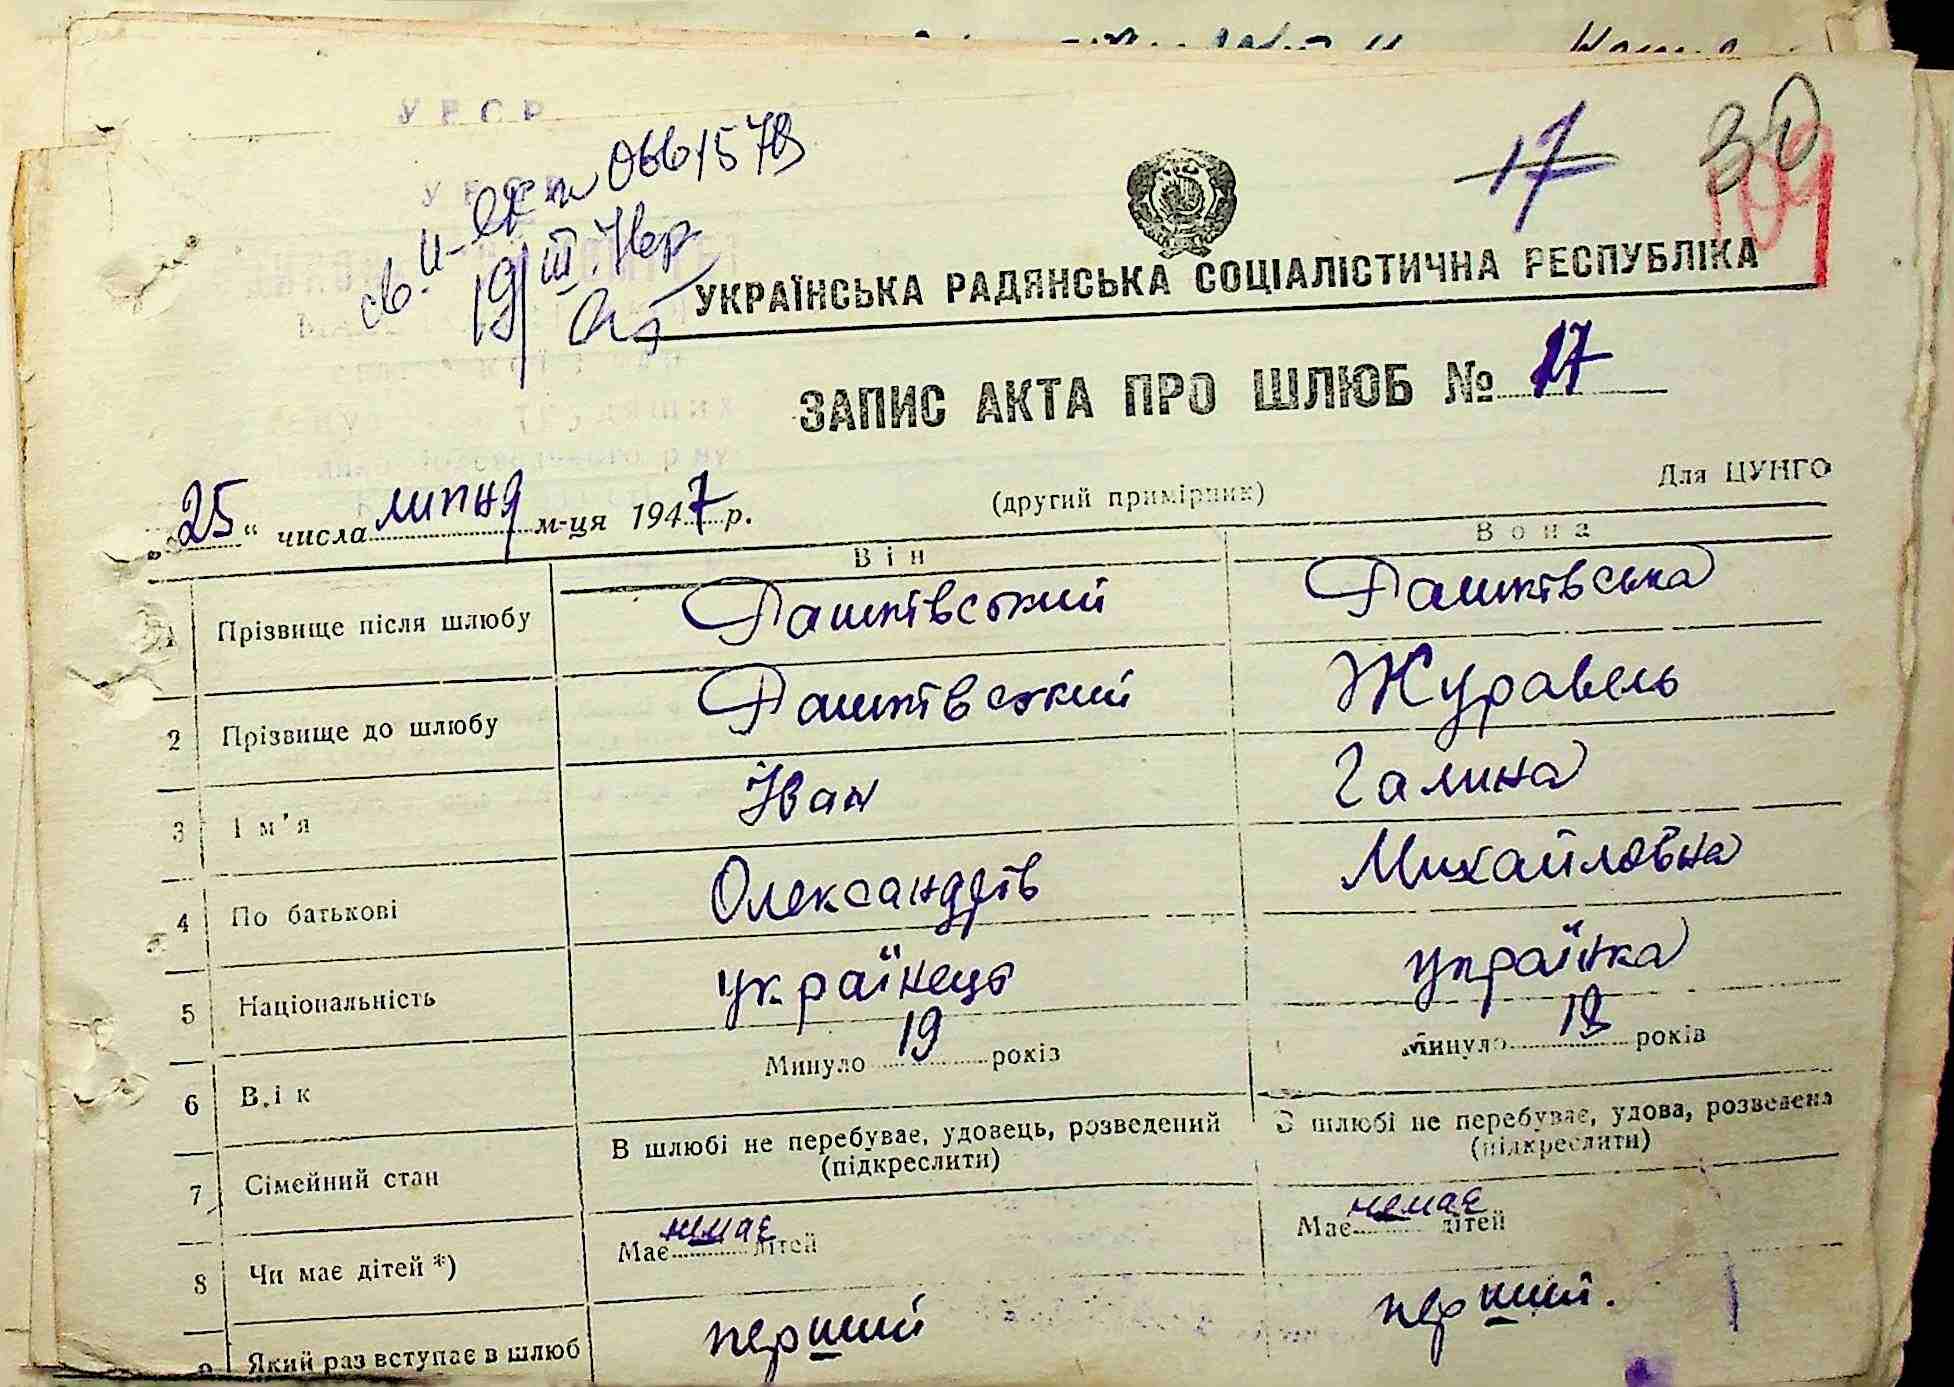 УРСР
св. и-ЕК № 0661579
19/III.74р
17
30
109
УКРАЇНСЬКА РАДЯНСЬКА СОЦІАЛІСТИЧНА РЕСПУБЛІКА
ЗАПИС АКТА ПРО ШЛЮБ № 17
„25“ числа липня м-ця 1947 р.
(другий примірник)
Для ЦУНГО
Він Вона
1 Прізвище після шлюбу Рашківський Рашківська
2 Прізвище до шлюбу Рашківський Журавель
3 Ім'я Іван Галина
4 По батькові Олександрів Михайловна
5 Національність українець українка
6 Вік Минуло 19 років Минуло 18 років
7 Сімейний стан В шлюбі не перебуває, удовець, розведений (підкреслити) В шлюбі не перебуває, удова, розведена (підкреслити)
8 Чи має дітей *) Має немає дітей Має немає дітей
9 Який раз вступає в шлюб перший перший.